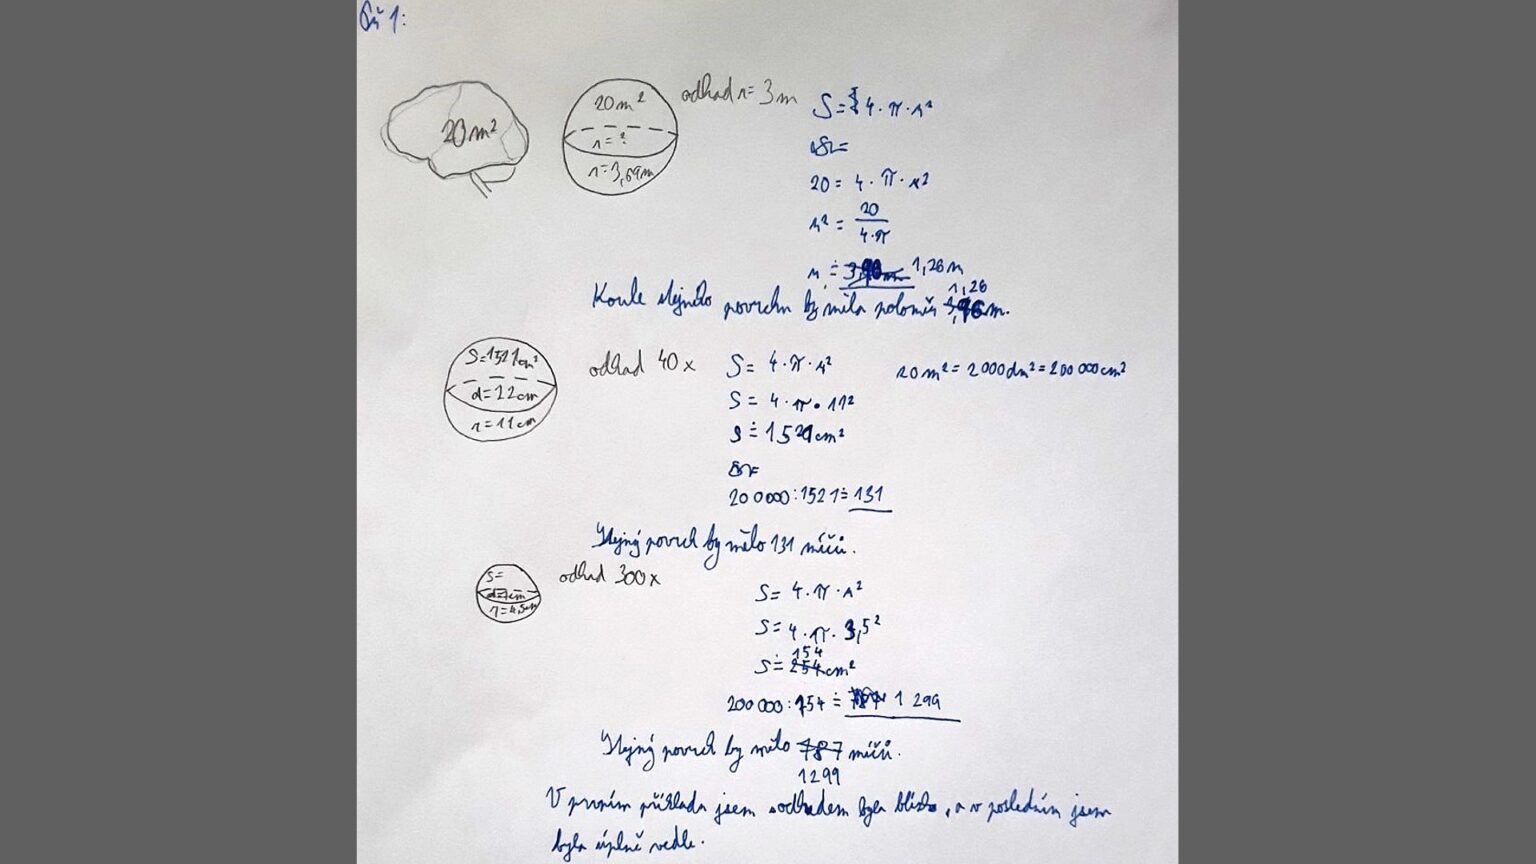 DÚ 1:
20 m²
20 m²
r = ?
r = 3,69 m
odhad r = 3 m
S = 4 · π · r²
20 = 4 · π · r²
r² = 20 / 4·π
r ≐ 1,26 m
1,26
Koule stejného povrchu by měla poloměr m.
S = 1521 cm²
d = 22 cm
r = 11 cm
odhad 40 x
S = 4 · π · r²
20 m² = 2 000 dm² = 200 000 cm²
S = 4 · π · 11²
S ≐ 1521 cm²
200 000 : 1521 ≐ 131
Stejný povrch by mělo 131 míčů.
S =
odhad 300 x
S = 4 · π · r²
S = 4 · π · 3,5²
154
S ≐ 254 cm²
200 000 : 154 ≐ 1 299
Stejný povrch by mělo 787 míčů.
1299
V prvním příkladu jsem s odhadem byla blízko, a v posledním jsem
byla úplně vedle.